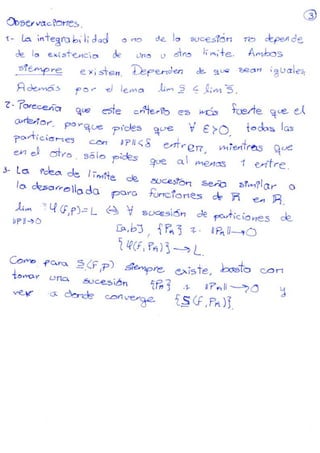 ③
Observaciones.
1- La integrabilidad o no de la sucesión no depende
de la existencia de uno u otro límite. Ambos
siempre existen. Dependen de que sean iguales.
Además por el lema lim S ≤ lim S.
2- Parecería que este criterio es más fuerte que el
anterior, porque pides que ∀ ε>0, todas las
particiones con ‖P‖<δ entren, mientras que
en el otro sólo pides que al menos 1 entre.
3- La idea de límite de sucesión sería similar a
la desarrollada para funciones de ℝ en ℝ.
lim φ(f,P)=L ⇔ ∀ sucesión de particiones de
‖P‖→0
[a,b], {Pn} t. ‖Pn‖→0
{φ(f,Pn)}→L.
Como para S(f,P) siempre existe, basta con
tomar una sucesión {Pn} t ‖Pn‖→0 y
ver a donde converge {S(f,Pn)}.